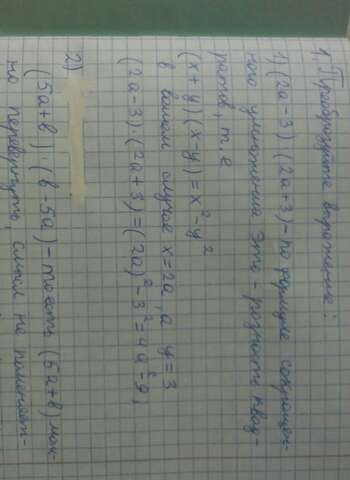 1. Преобразуйте выражение:
1) (2a-3)(2a+3) - по формуле сокращен-
ного умножения это - разность квад-
ратов, т.е
(x+y)(x-y) = x²-y²
в вашем случае x=2a, а y=3
(2a-3)·(2a+3) = (2a)²-3² = 4a²-9;
2)
(5a+b)·(b-5a) - то есть (5a+b) мож-
но перевернуть, смысл не поменяет-